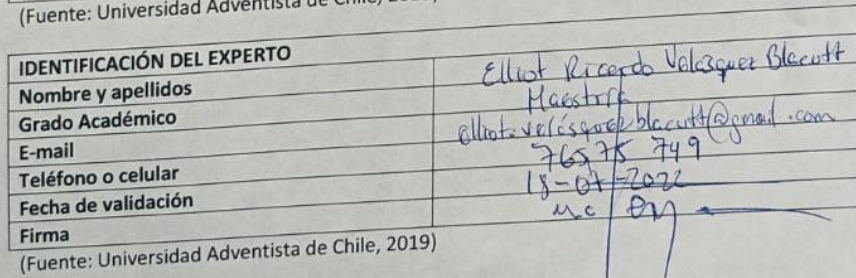 (Fuente: Universidad Adventista de Chile,
IDENTIFICACIÓN DEL EXPERTO
Nombre y apellidos Elliot Ricardo Velásquez Blacutt
Grado Académico Maestría
E-mail elliot.velásquez.blacutt@gmail.com
Teléfono o celular 76575 749
Fecha de validación 18-07-2022
Firma
(Fuente: Universidad Adventista de Chile, 2019)